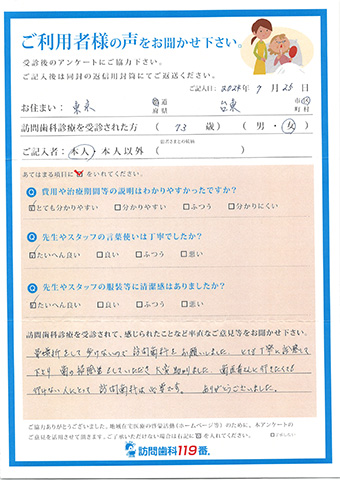 ご利用者様の声をお聞かせ下さい。
受診後のアンケートにご協力下さい。
ご記入後は同封の返信用封筒にてご返送ください。
ご記入日: 2024年9月25日
お住まい: 東京 都道府県 台東 市区町村
訪問歯科診療を受診された方 ( 73 歳) (男・女)
ご記入者: 本人・本人以外 ( )
あてはまる項目に☑をいれてください。
Q 費用や治療期間等の説明はわかりやすかったですか?
☑とても分かりやすい □分かりやすい □ふつう □分かりにくい
Q 先生やスタッフの言葉使いは丁寧でしたか?
☑たいへん良い □良い □ふつう □悪い
Q 先生やスタッフの服装等に清潔感はありましたか?
☑たいへん良い □良い □ふつう □悪い
訪問歯科診療を受診されて、感じられたことなど率直なご意見等をお聞かせ下さい。
骨折をして歩けないので訪問歯科をお願いしました とても丁寧に診察して
下さり 歯の掃除もしていただき大変助かりました 歯医者さんに行きたくても
行けない人にとって訪問歯科は必要です。 ありがとうございました。
ご協力ありがとうございました。地域在宅医療の啓蒙活動(ホームページ等)のために、本アンケートの
ご意見を活用させて頂きます。ご了承いただけない場合は右記に☑を入れてください。
訪問歯科119番